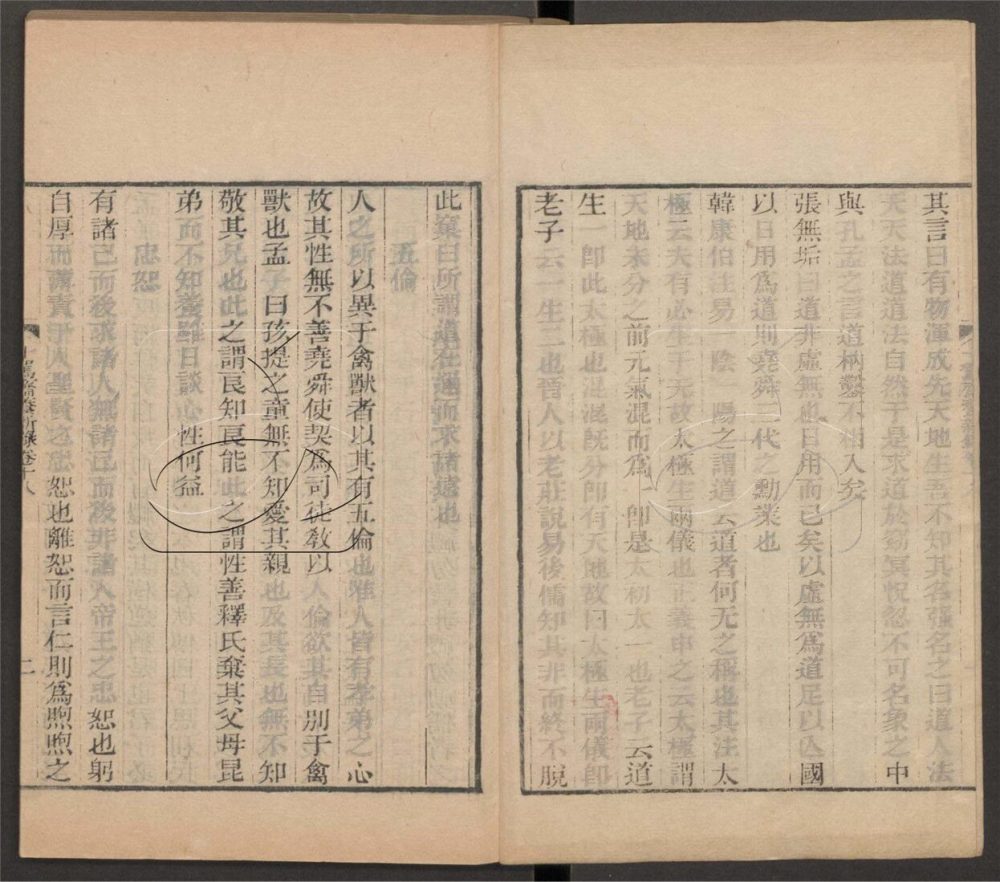 其言曰有物渾成先天地生吾不知其名強名之曰道人法
天天法道道法自然于是求道於窈冥怳忽不可名象之中
與孔孟之言道枘鑿不相入矣
張無垢曰道非虛無也日用而已矣以虛無爲道足以亡國
以日用爲道則堯舜三代之勳業也
韓康伯注易一陰一陽之謂道云道者何无之稱也其注太
極云夫有必生于无故太極生兩儀也正義申之云太極謂
天地未分之前元氣混而爲一卽是太初太一也老子云道
生一卽此太極也混混旣分卽有天地故曰太極生兩儀卽
老子云一生二也晉人以老莊說易後儒知其非而終不脫
此窠臼所謂道在邇而求諸遠也
五倫
人之所以異于禽獸者以其有五倫也唯人皆有孝弟之心
故其性無不善堯舜使契爲司徒敎以人倫欲其自別于禽
獸也孟子曰孩提之童無不知愛其親也及其長也無不知
敬其兄也此之謂良知良能此之謂性善釋氏棄其父母昆
弟而不知養雖日談心性何益
忠恕
有諸己而後求諸人無諸己而後非諸人帝王之忠恕也躬
自厚而薄責于人聖賢之忠恕也離恕而言仁則爲煦煦之
十駕齋養新錄卷十八
二